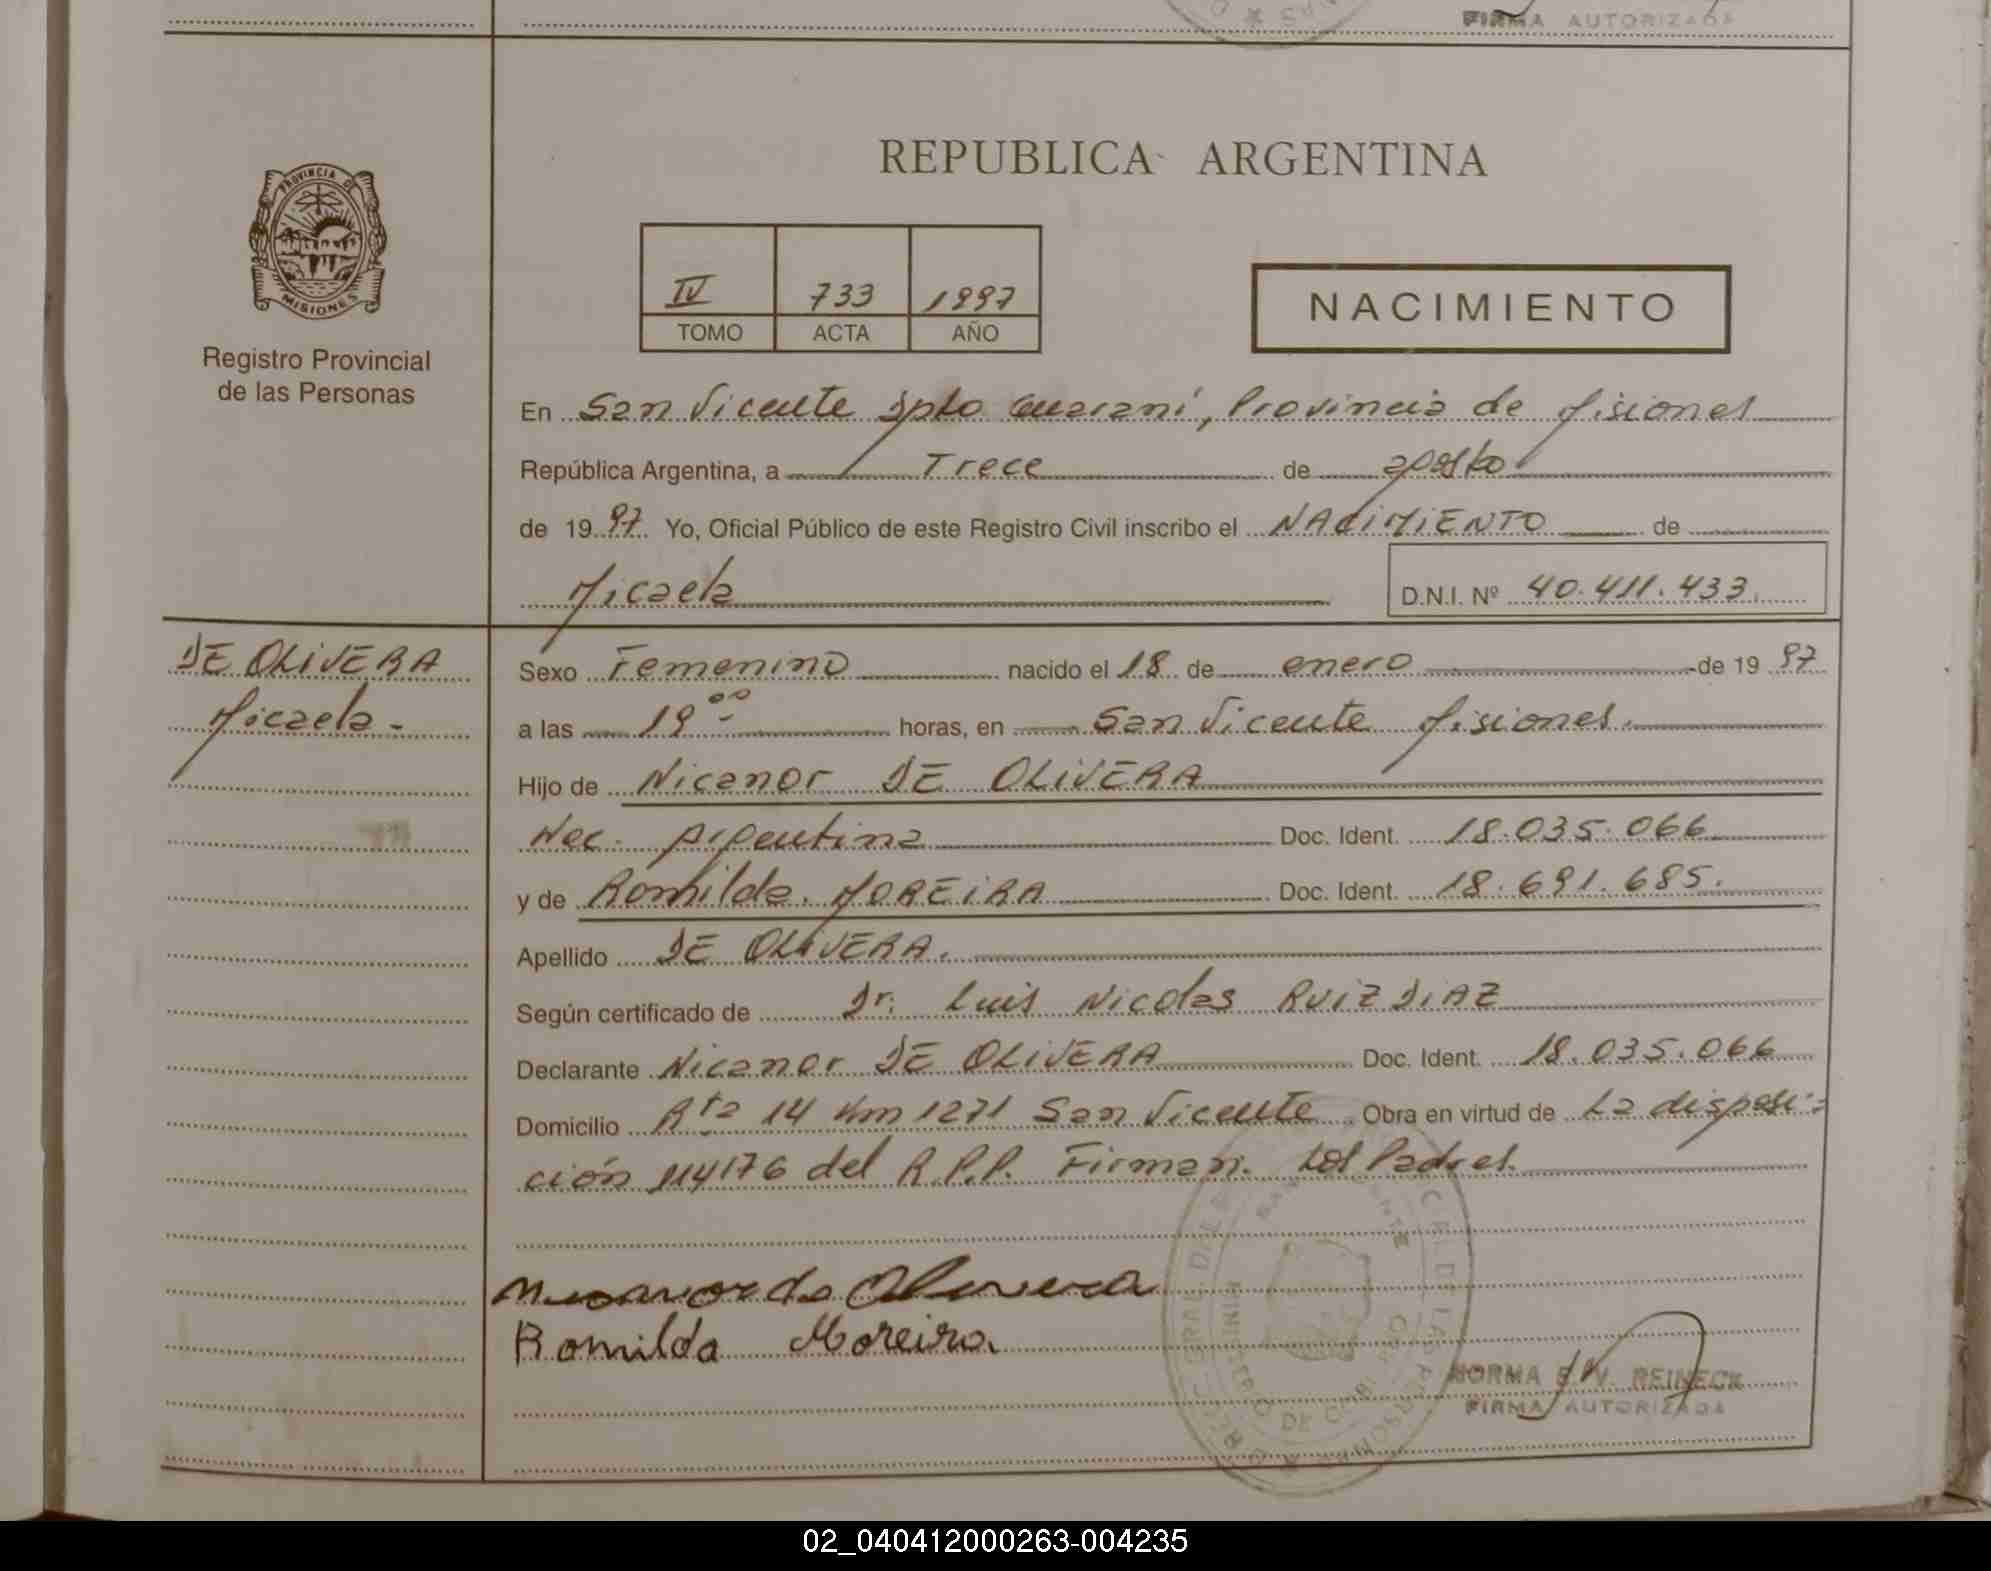 FIRMA AUTORIZADA
REPUBLICA ARGENTINA
PROVINCIA DE
MISIONES
Registro Provincial
de las Personas
IV 733 1997
TOMO ACTA AÑO
NACIMIENTO
En San Vicente Dpto Guaraní, Provincia de Misiones
República Argentina, a Trece de agosto
de 1997 Yo, Oficial Público de este Registro Civil inscribo el NACIMIENTO de
Micaela D.N.I. Nº 40.411.433
DE OLIVERA
Micaela -
Sexo Femenino nacido el 18 de enero de 1997
a las 19 00 horas, en San Vicente Misiones.
Hijo de Nicanor DE OLIVERA
Nac. Argentina Doc. Ident. 18.035.066
y de Romilda MOREIRA Doc. Ident. 18.691.685.
Apellido DE OLIVERA.
Según certificado de Dr. Luis Nicolas RUIZ DIAZ
Declarante Nicanor DE OLIVERA Doc. Ident. 18.035.066
Domicilio Rta 14 Km 1271 San Vicente Obra en virtud de La disposi-
ción 114176 del R.P.P. Firman. Los Padres.
de Olivera
Romilda Moreira
NORMA REINECK
FIRMA AUTORIZADA
02_040412000263-004235